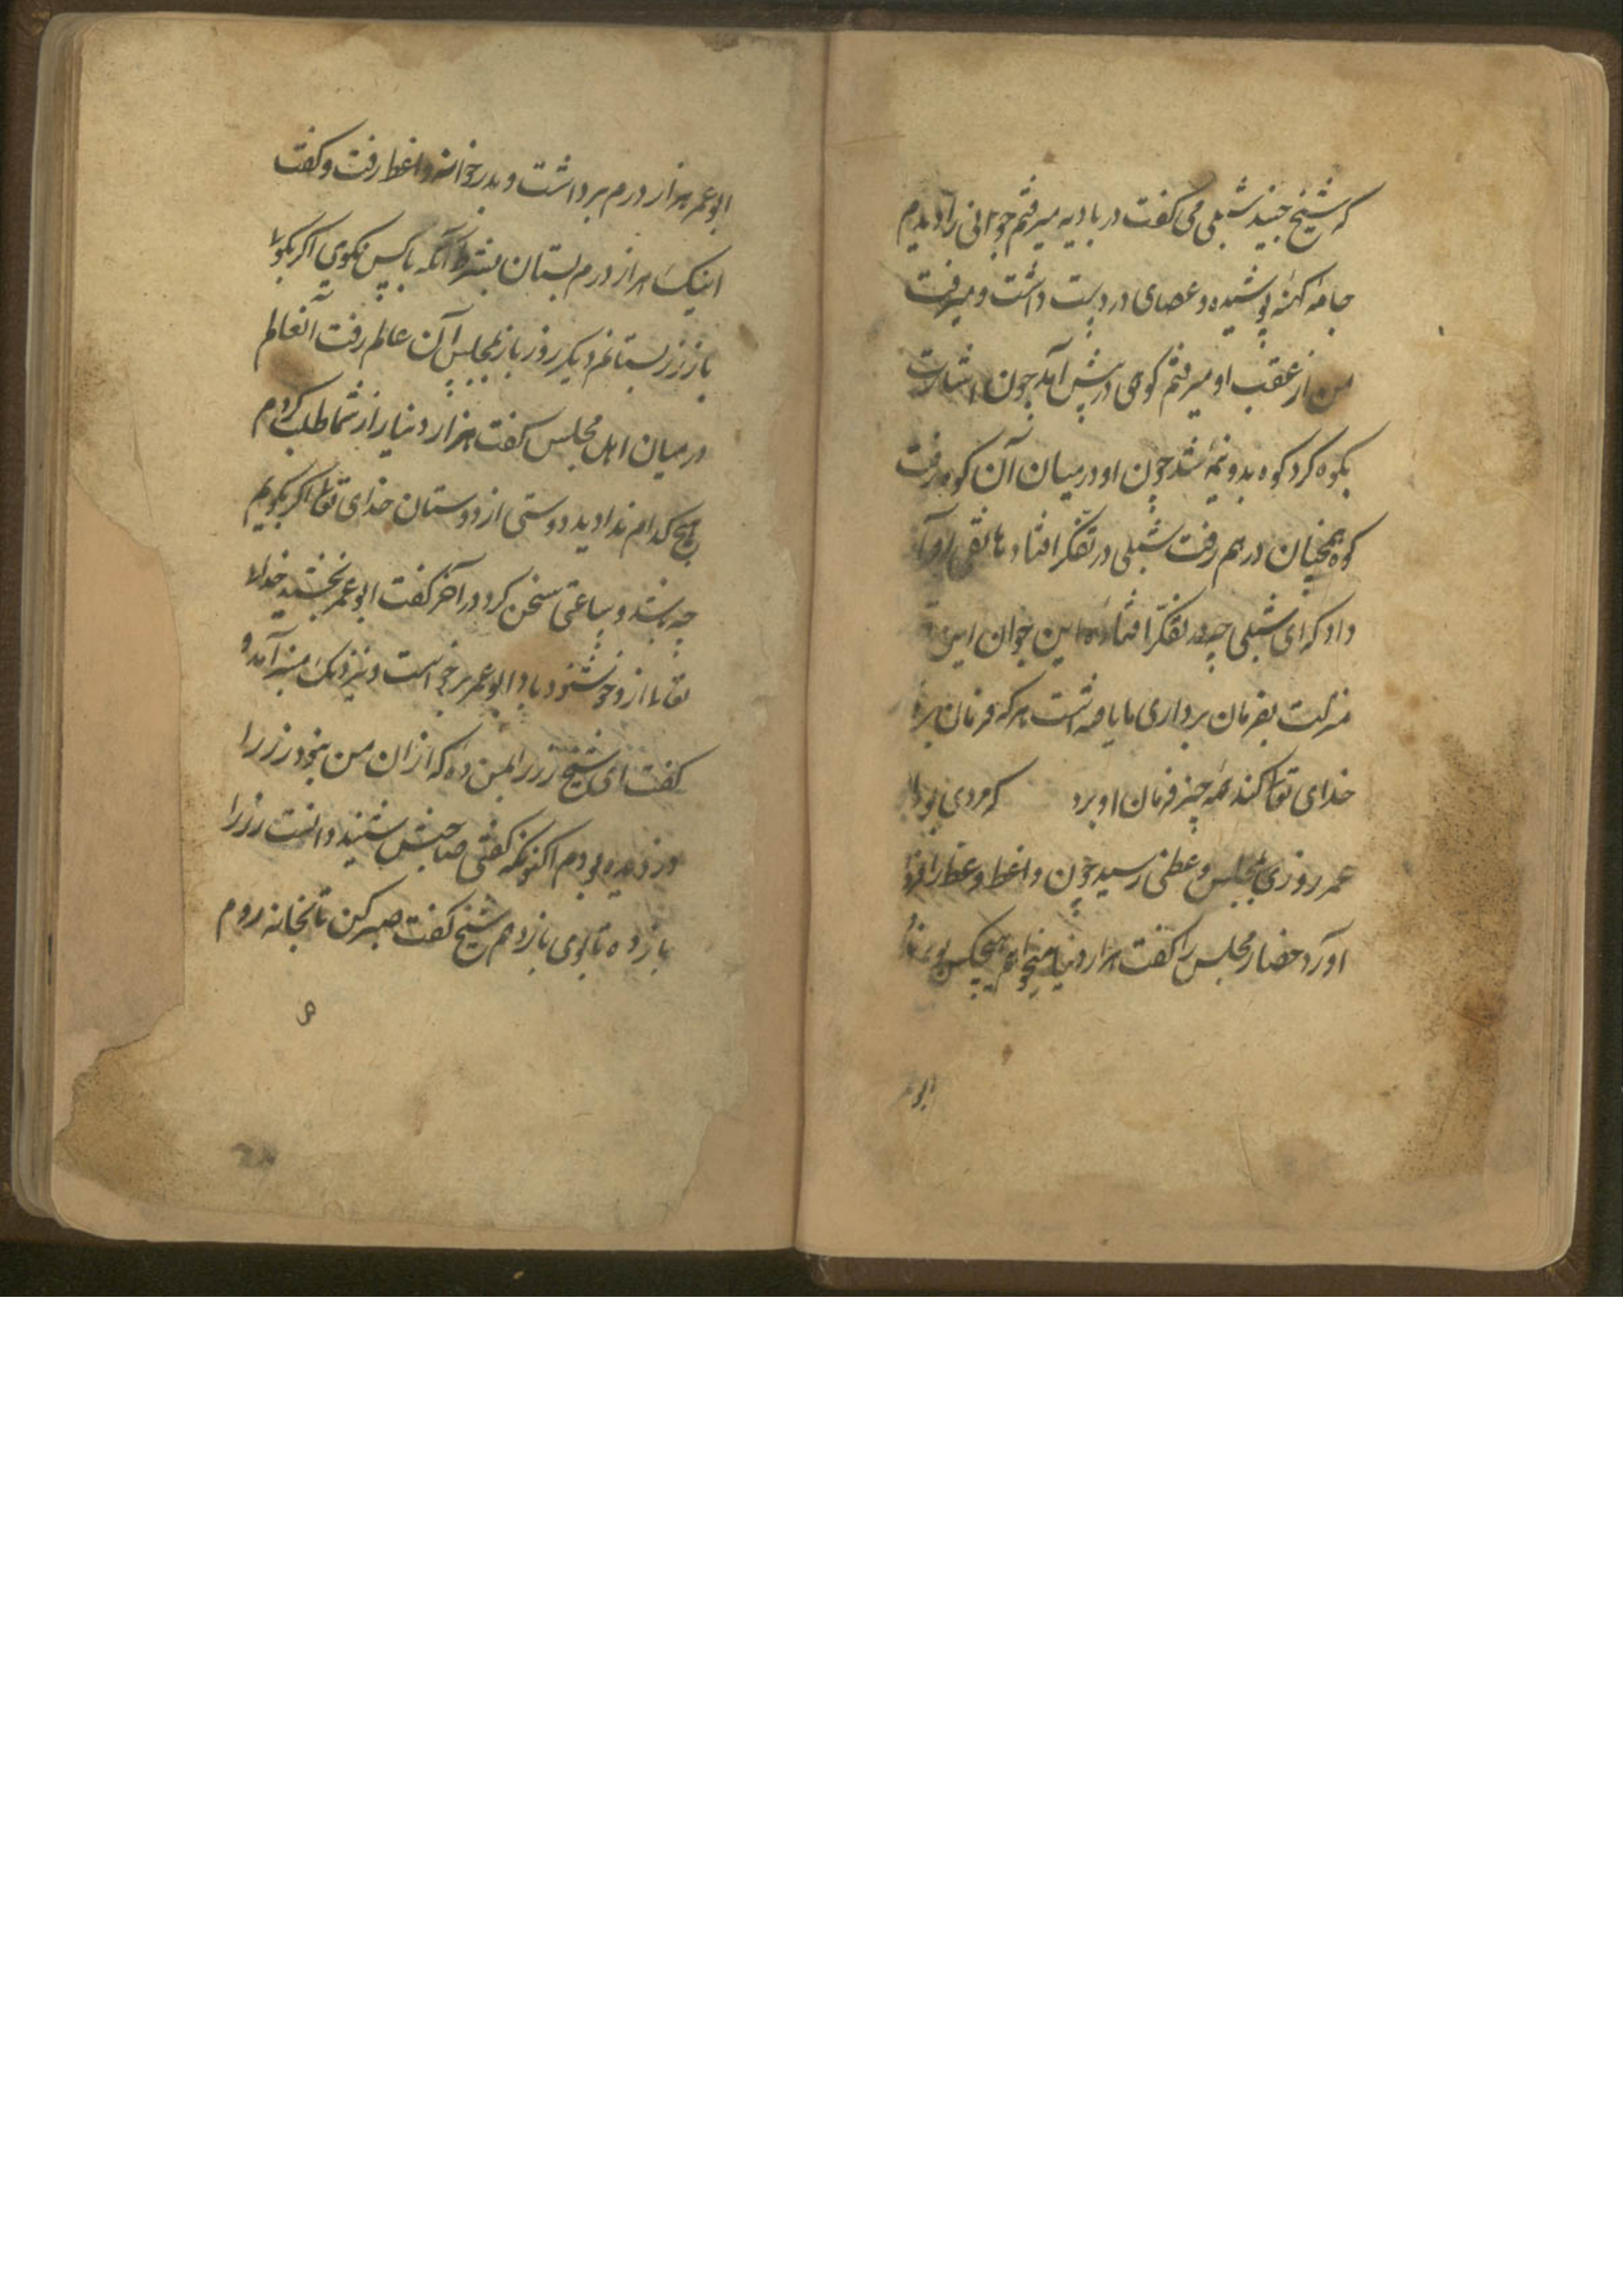 که شیخ جنید شبلی می کفت در بادیه میرفتم جوانی را دیدم
جامه کهنه پوشیده و عصای در دست داشت و میرفت
من از عقب او میرفتم کوهی در پیش آمد چون اشارت
بکوه کرد کوه بدو نیمه شد چون او در میان آن کوه رفت
کوه همچنان در هم رفت شبلی در تفکر افتاد هاتفی آواز
داد که ای شبلی چه در تفکر افتاده این جوان این
منزلت بفرمان برداری ما یافته است هر که فرمان برد
خدای تعالی کند همه چیز فرمان او برد که مردی بود ابو
عمر روزی بمجلس وعظی رسید چون واعظ وعظ را فرو
آورد حضار مجلس را کفت هزار دینار میخواهم هیچکس بوی نداد
ابو عمر
ابو عمر هزار درم برداشت و بدر خوانه واعظ رفت و کفت
اینک هزار درم بستان بشرط آنکه با کس نکوی اکر بکوی
باز زر بستانم دیکر روز باز بمجلس آن عالم رفت آن عالم
در میان اهل مجلس کفت هزار دینار از شما طلب کردم
هیچ کدام ندادید دوستی از دوستان خدای تعالی اکر بکویم
چه شد و ساعتی سخن کرد در آخر کفت ابو عمر بخشید خدای
تعالی ازو خوشنود باد ابو عمر برخواست و نزدیک منبر آمد و
کفت ای شیخ زر را بمن ده که از ان من نبود زر را
دزدیده بودم اکنونکه کفتی صاحبش شنید دانست زر را
باز ده تا بوی باز دهم شیخ کفت صبر کن تا بخانه روم